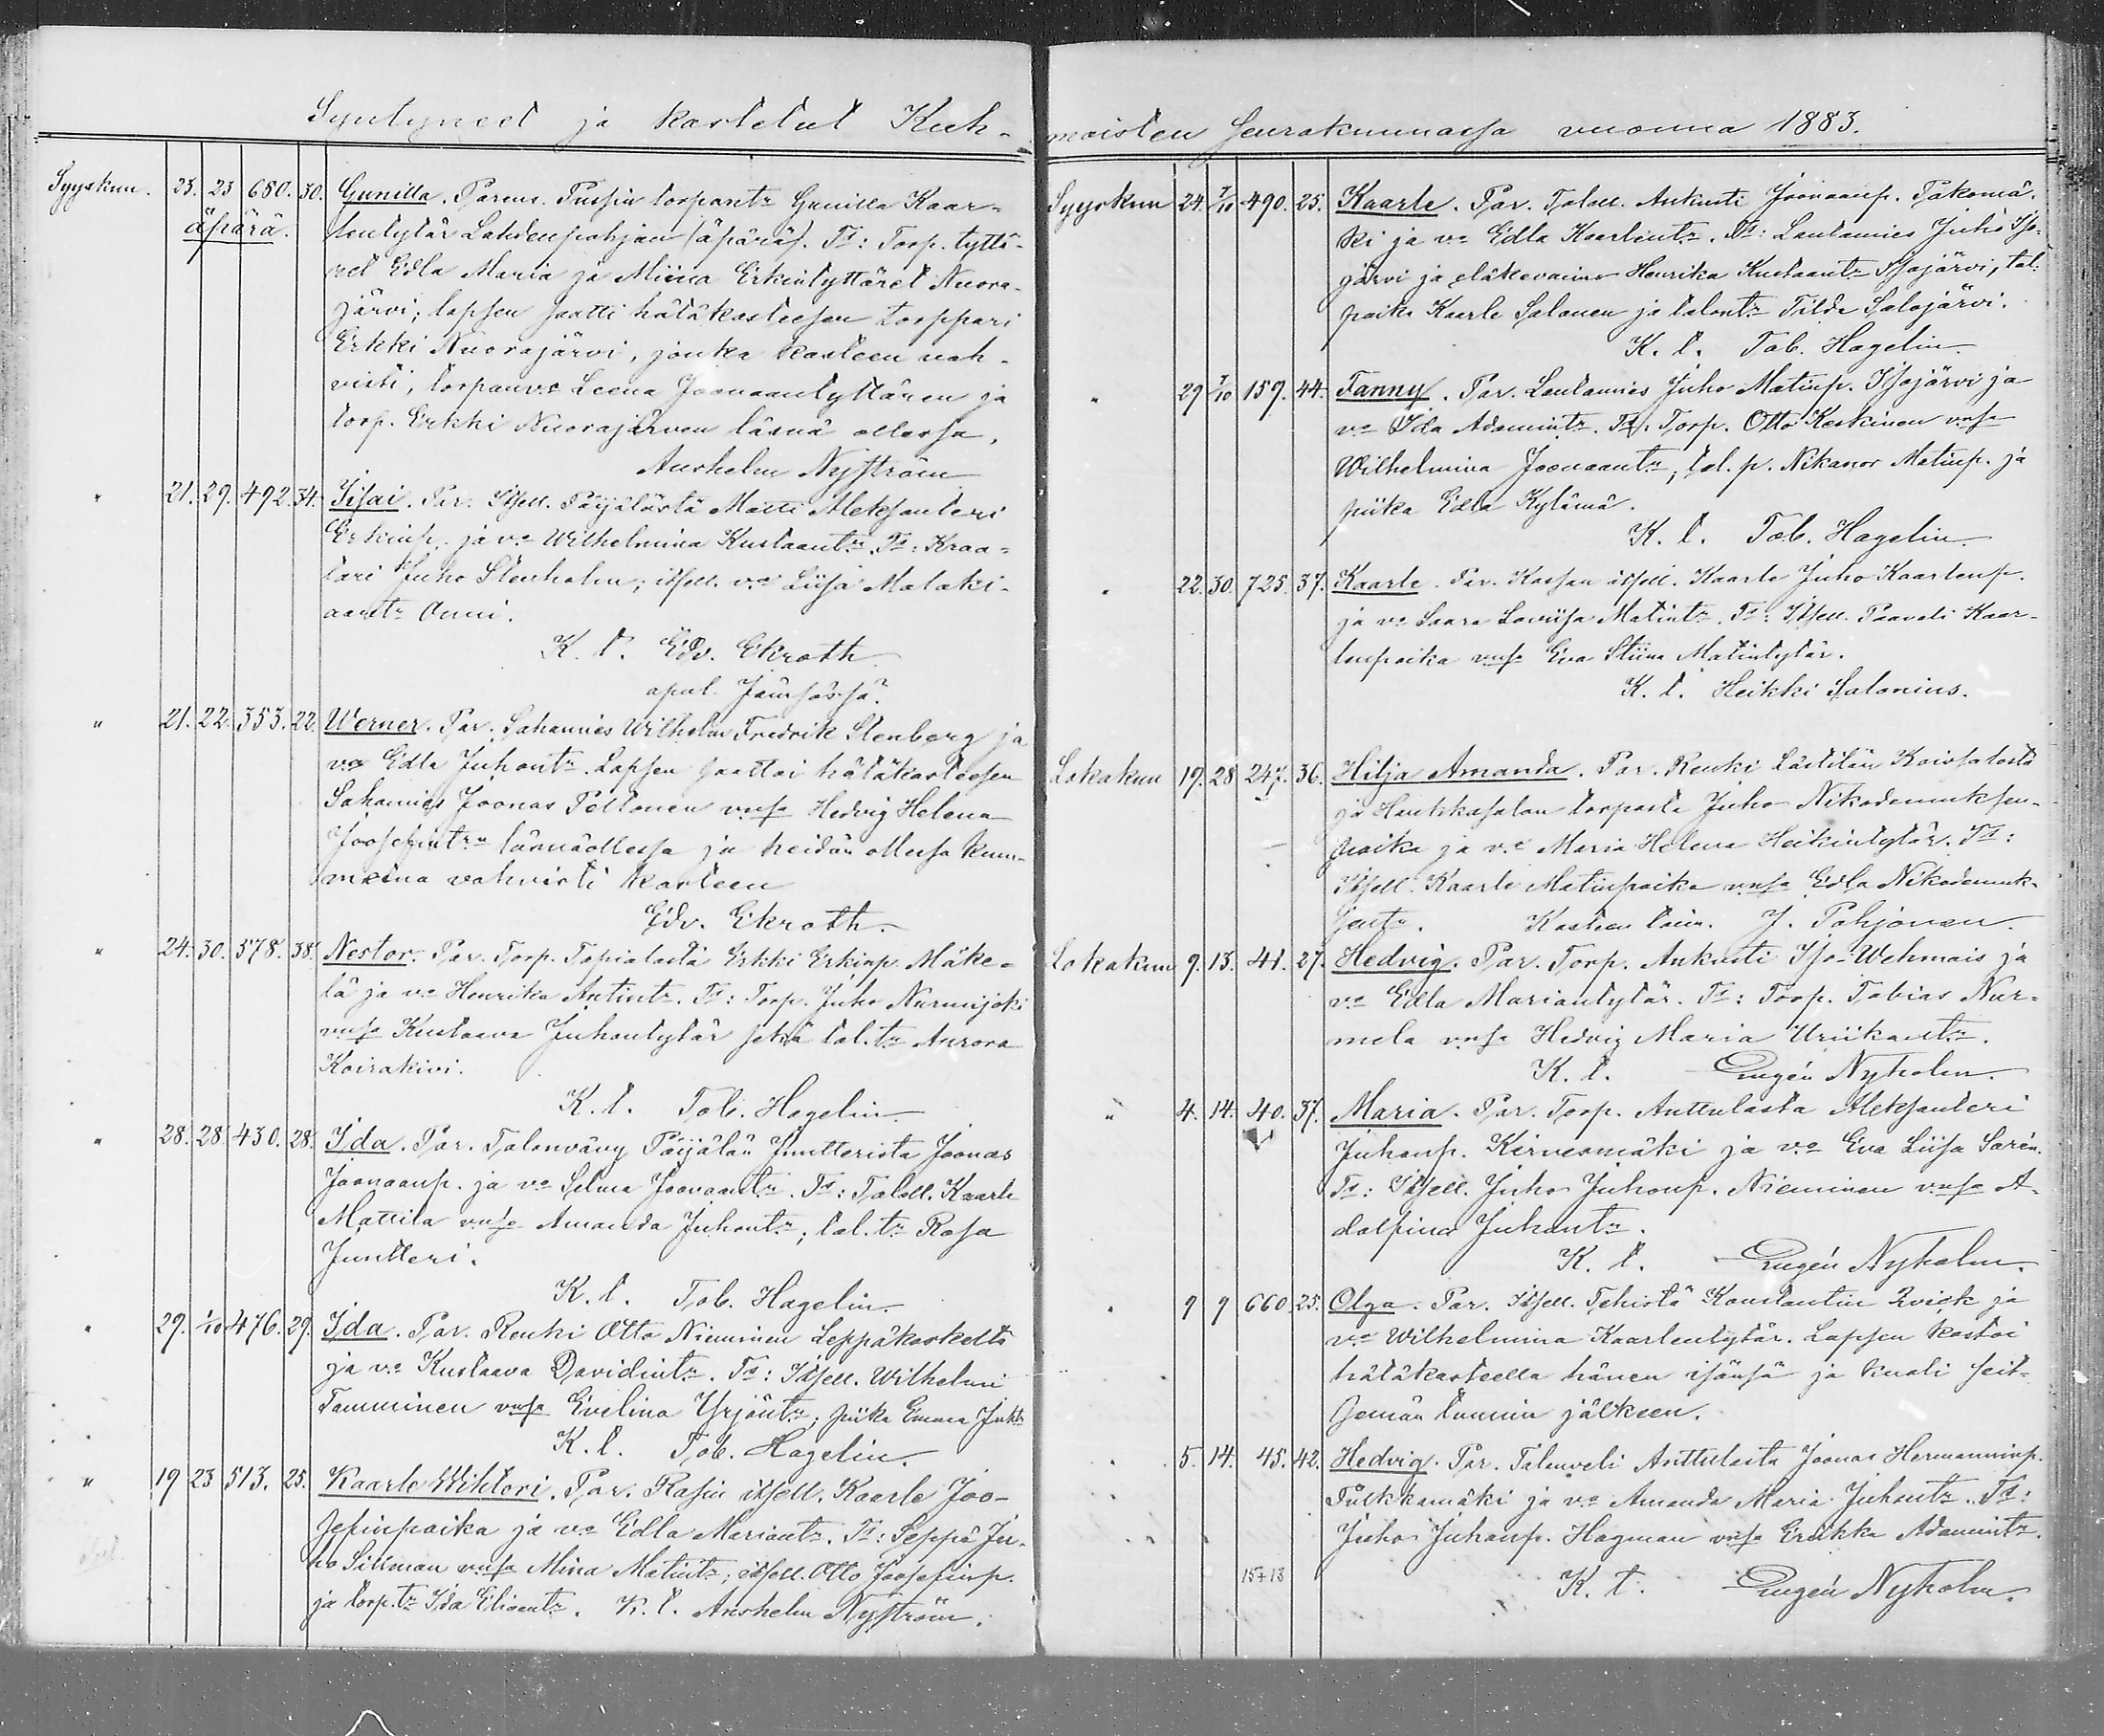 Syntyneet ja kastetut Kuh-
Syyskun. 23. 23 680. 30. Gunilla. Parens. Pussin torpantr Gunilla Kaar-
äpärä. lentytär Lahdenpohjan (äpärä). Tt: Torp. tyttä-
ret Edla Maria ja Miina Erkintyttäret Nuora-
järvi; lapsen saatti hätäkasteesen torppari
Erkki Nuorajärvi, jonka kasteen vah-
visti, torpanvo Leena Joonaantyttären ja
torp. Erkki Nuorajärven läsnä ollessa,
Anshelm Nyström
" 21. 29. 492. 34. Iisai. Par. Itsell. Päijälästä Matti Aleksanteri
Erkinp. ja vo Wilhelmina Kustaantr. Tt: Kraa-
tari Juho Stenholm; itsell. vo Liisa Malaki-
aantr Onni.
K. t. Edv. Ekroth
apul. Jämsässä.
" 21. 22. 353. 22. Werner. Par. Sahamies Wilhelm Fredrik Stenberg ja
vo Edla Juhontr. Lapsen saattoi hätäkasteesen
Sahamies Joonas Peltonen vnsa Hedvig Helena
Joosefintr läsnäollessa ja heidän ollessa kum-
meina vahvisti kasteen
Edv. Ekroth.
" 24. 30. 378. 38. Nestor. Par. Torp. Tapialasta Erkki Erkinp. Mäke-
lä ja vo Henrika Antintr. Tt: Torp. Juho Nurmijoki
vnsa Kustaava Juhontytär sekä tal. tr Aurora
Koirakivi.
K. t. Tob. Hagelin
" 28. 28. 430. 28. Ida. Par. Talonvävy Päijälän Juntterista Joonas
Joonaanp. ja vo Selma Joonaantr. Tt: Taloll. Kaarle
Mattila vnsa Amanda Juhontr; tal. tr Rosa
Juntteri.
K. t. Tob. Hagelin.
" 29. 1/10 476. 29. Ida. Par. Renki Otto Nieminen Leppäkoskelta
ja vo Kustaava Davidintr. Tt: Itsell. Wilhelmi
Tamminen vnsa Evelina Yrjöntr; piika Emma Juhtr
K. t. Tob. Hagelin.
" 19 23 513. 25. Kaarle Wihtori. Par. Rasin itsell. Kaarle Joo-
sefinpoika ja vo Edla Mariantr. Tt: Seppä Ju-
ho Sillman vnsa Mina Matintr; itsell. Otto Joosefinp.
ja torp. tr Ida Eliantr. K. t. Anshelm Nyström.
moisten Seurakunnassa vuonna 1883.
Syyskun 24. 7/10 490. 25. Kaarle. Par. Taloll. Ankusti Joonaanp. Pakomä-
ki ja vo Edla Kaarlentr. Tt: Lautamies Juho Iso-
järvi ja eläkevaimo Henrika Kustaantr Isojärvi, tal:
poika Kaarle Salonen ja talontr Tilda Salojärvi.
K. t. Tob. Hagelin.
" 29 7/10 159. 44. Fanny. Par. Lautamies Juho Matinp. Isojärvi ja
vo Ida Adamintr. Tt. Torp. Otto Keskinen vnsa
Wilhelmina Joonaantr; tal. p. Nikanor Matinp. ja
piika Edla Kylämä.
K. t. Tob. Hagelin.
" 22. 30. 725. 37. Kaarle. Par. Kassan itsell. Kaarle Juho Kaarlenp.
ja vo Saara Loviisa Matintr. Tt: Itsell. Paaveli Kaar-
lenpoika vnsa Eva Stiina Matintytär.
K. t. Heikki Salonius.
Lokakun 19. 28 247. 36. Hilja Amanda. Par. Renki Lästilän
ja Haukkasalon torpasta Juho Nikodemuksen-
poika ja vo Maria Helena Heikintytär. Tt:
Itsell. Kaarle Matinpoika vnsa Edla Nikodemuk-
sentr. Kasteen toim. J. Pohjonen.
Lokakun 9. 15. 41. 27. Hedvig. Par. Torp. Ankusti Iso-Wehmais ja
vo Edla Mariantytär. Tt: Torp. Tobias Nur-
mela vnsa Hedvig Maria Uriikantr.
K. t. Eugén Nyholm.
" 4. 14. 40. 37. Maria. Par. Torp. Anttulasta Aleksanteri
Juhonp. Kirvesmäki ja vo Eva Liisa Sarén.
Tt: Itsell. Juho Juhonp. Nieminen vnsa A-
dolfina Juhontr.
K. t. Eugén Nyholm.
" 9 9 660 25. Olga. Par. Itsell. Tehistä Konstantin Qvick ja
vo Wilhelmina Kaarlentytär. Lapsen kastoi
hätäkasteella hänen isänsä ja kuoli seit-
semän tunnin jälkeen.
" 5. 14. 45. 42. Hedvig. Par. Talonveli Anttulasta Joonas Hermanninp.
Pulkkamäki ja vo Amanda Maria Juhontr. Tt:
Juho Juhonp. Hagman vnsa Eriikka Adamintr.
15+13 K. t. Eugén Nyholm.